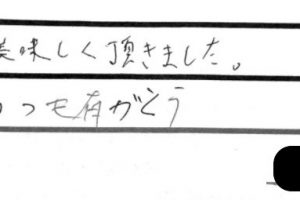 美味しく頂きました。
いつも有がとう